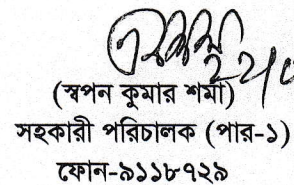 (স্বপন কুমার শর্মা)
সহকারী পরিচালক (পার-১)
ফোন-৯১১৮৭২৯